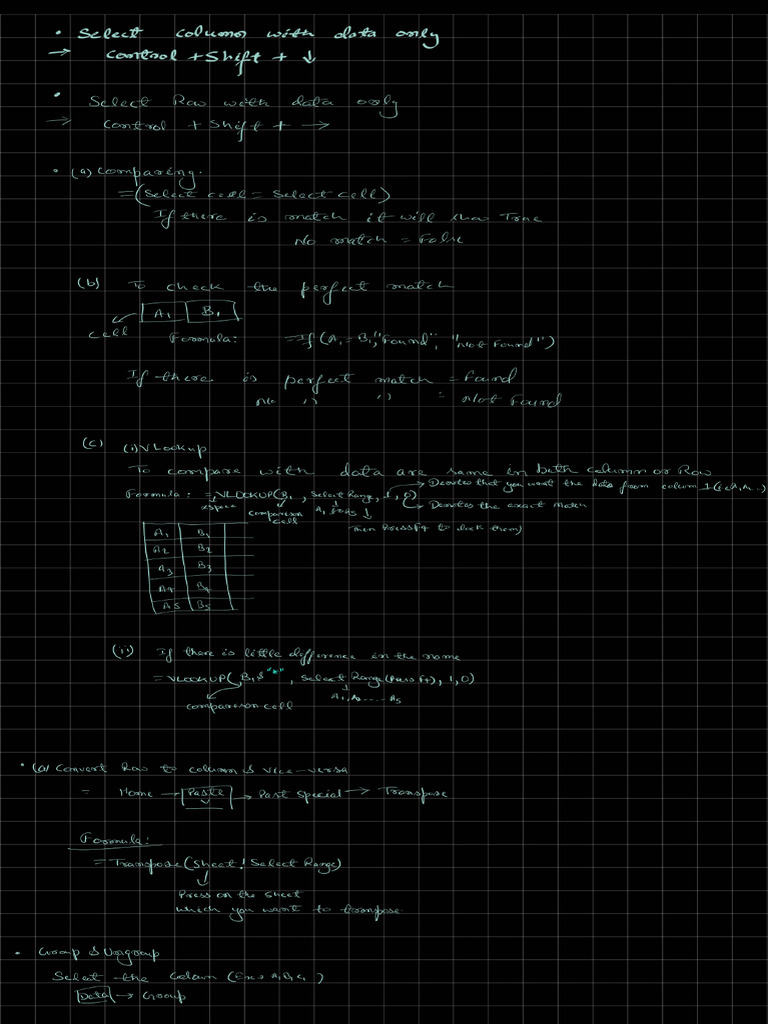 • Select column with data only
→ Control + Shift + ↓
• Select Row with data only
→ Control + Shift + →
• (a) Comparing.
=(Select cell = Select cell)
If there is match it will show True
No match = False
(b) To check the perfect match
A₁ B₁
cell
Formula: =If(A₁ = B₁, "Found", "Not Found")
If there is perfect match = Found
No " " = Not Found
(c) (i) VLookup
To compare with data are same in both column or Row
→ Denotes that you want the data from column 1
Formula : =VLOOKUP(B₁, Select Range, 1, 0)
→ Denotes the exact match
comparison cell
A₁ to A₅
Then Press F4 to lock them)
A₁ B₁
A₂ B₂
A₃ B₃
A₄ B₄
A₅ B₅
(ii) If there is little difference in the name
=VLOOKUP(B₁&"*", Select Range(Press F4), 1, 0)
A₁, A₂ ..... A₅
comparison cell
• (a) Convert Row to column & vice-versa
= Home → Paste → Past Special → Transpose
Formula:
= Transpose(Sheet! Select Range)
Press on the sheet
which you want to transpose
• Group & Ungroup
Select the Column (Ex → A₁ B₁ C₁)
Data → Group